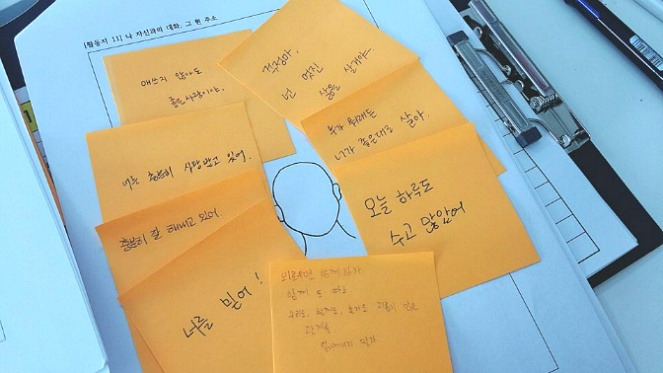 [활동지 11] 나 자신과의 대화, 그 한 주소
애쓰지 않아도
좋은 사람이야.
걱정마,
넌 멋진
삶을 살거야.
누가 뭐래도
너가 좋은대로 살아.
너는 충분히 사랑받고 있어.
오늘 하루도
수고 많았어
충분히 잘 해내고 있어.
너를 믿어!
함께
관계를
잃어버리지 말자